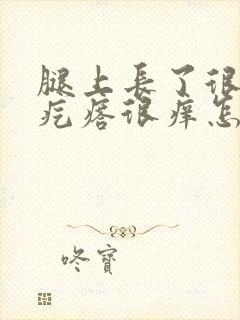 腿上長了很
疙瘩很痒怎
咚寶